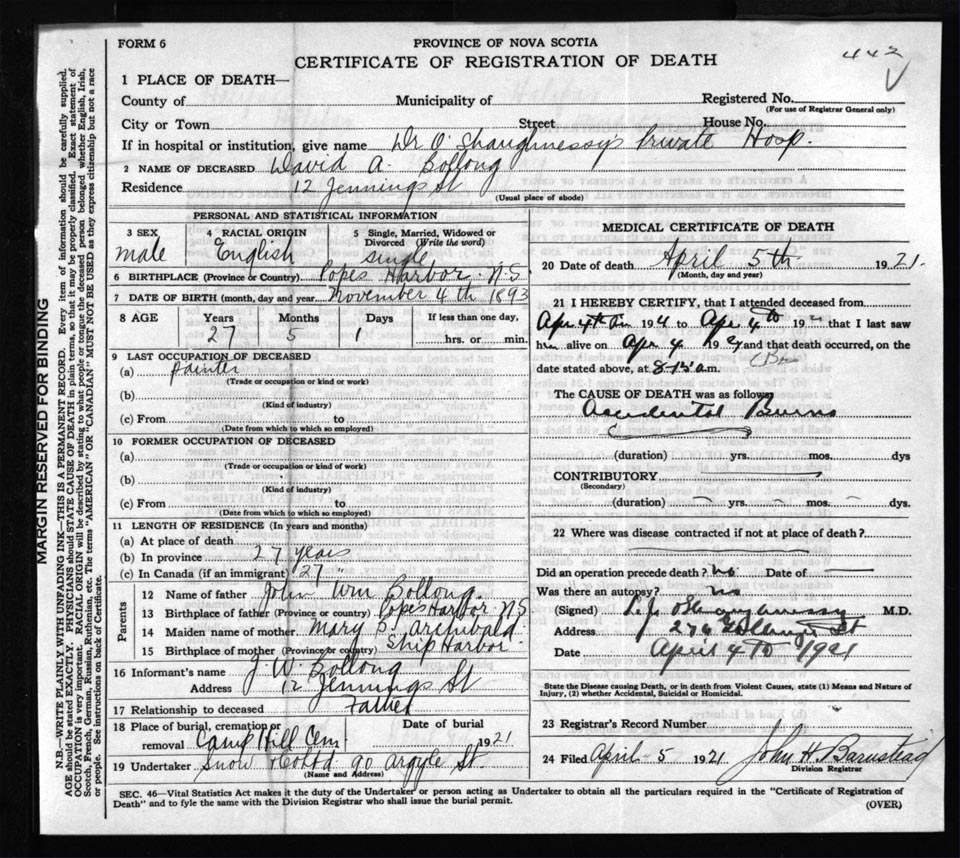 FORM 6
PROVINCE OF NOVA SCOTIA
CERTIFICATE OF REGISTRATION OF DEATH
442
1 PLACE OF DEATH—
County of Halifax Municipality of Halifax Registered No.
(For use of Registrar General only)
City or Town Street House No.
If in hospital or institution, give name Dr O'Shaughnessy's Private Hosp.
2 NAME OF DECEASED David A. Bollong
Residence 12 Jennings St
(Usual place of abode)
PERSONAL AND STATISTICAL INFORMATION
3 SEX male
4 RACIAL ORIGIN English
5 Single, Married, Widowed or Divorced (Write the word) single
6 BIRTHPLACE (Province or Country) Popes Harbor N.S.
7 DATE OF BIRTH (month, day and year) November 4th 1893
8 AGE Years Months Days If less than one day,
27 5 1 hrs. or min.
9 LAST OCCUPATION OF DECEASED
(a) painter
(Trade or occupation or kind of work)
(b)
(Kind of industry)
(c) From to
(Date from which to which so employed)
10 FORMER OCCUPATION OF DECEASED
(a)
(Trade or occupation or kind of work)
(b)
(Kind of industry)
(c) From to
(Date from which to which so employed)
11 LENGTH OF RESIDENCE (In years and months)
(a) At place of death
(b) In province 27 years
(c) In Canada (if an immigrant) 27 "
Parents
12 Name of father John Wm Bollong
13 Birthplace of father (Province or country) Popes Harbor N.S
14 Maiden name of mother Mary S. Archibald
15 Birthplace of mother (Province or country) Ship Harbor
16 Informant's name J W. Bollong
Address 12 Jennings St
17 Relationship to deceased Father
18 Place of burial, cremation or removal Camp Hill Cem
Date of burial 1921
19 Undertaker Snow & Co Ltd 90 Argyle St.
(Name and Address)
MEDICAL CERTIFICATE OF DEATH
20 Date of death April 5th 1921.
(Month, day and year)
21 I HEREBY CERTIFY, that I attended deceased from
Apr 4th to Apr 4th 192 that I last saw
him alive on Apr 4 1921 and that death occurred, on the
date stated above, at 8 15 a.m.
The CAUSE OF DEATH was as follows
Accidental Burns
(duration) yrs. mos. dys
CONTRIBUTORY
(Secondary)
(duration) yrs. mos. dys.
22 Where was disease contracted if not at place of death?
Did an operation precede death? No Date of
Was there an autopsy? No
(Signed) M.D.
Address St
Date April 4th 1921
State the Disease causing Death, or in death from Violent Causes, state (1) Means and Nature of
Injury, (2) whether Accidental, Suicidal or Homicidal.
23 Registrar's Record Number
24 Filed April 5 1921 John H. Barnstead
Division Registrar
SEC. 46—Vital Statistics Act makes it the duty of the Undertaker or person acting as Undertaker to obtain all the particulars required in the "Certificate of Registration of
Death" and to fyle the same with the Division Registrar who shall issue the burial permit.
(OVER)
MARGIN RESERVED FOR BINDING
N.B.—WRITE PLAINLY WITH UNFADING INK—THIS IS A PERMANENT RECORD. Every item of information should be carefully supplied.
AGE should be stated EXACTLY. PHYSICIANS should STATE CAUSE OF DEATH in plain terms, so that it may be properly classified. Exact statement of
OCCUPATION is very important. RACIAL ORIGIN will be described by stating to what people or tongue the deceased person belonged whether English, Irish,
Scotch, French, German, Russian, Ruthenian, etc. The terms "AMERICAN" OR "CANADIAN" MUST NOT BE USED as they express citizenship but not a race
or people. See instructions on back of Certificate.